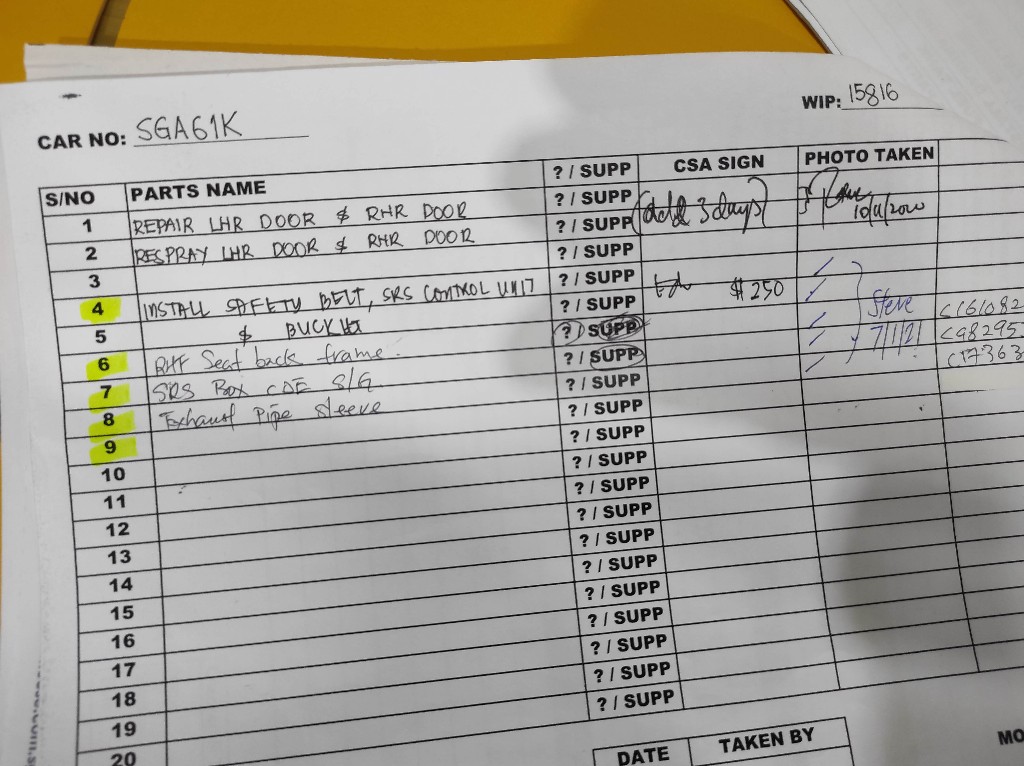 WIP: 15816
CAR NO: SGA61K
S/NO PARTS NAME ? / SUPP CSA SIGN PHOTO TAKEN
1 REPAIR LHR DOOR & RHR DOOR ? / SUPP (add 3 days)
2 RESPRAY LHR DOOR & RHR DOOR ? / SUPP
3 ? / SUPP
4 INSTALL SAFETY BELT, SRS CONTROL UNIT ? / SUPP $250
5 & ? / SUPP Steve
6 RHF Seat back frame. ? / SUPP 7/1/21
7 SRS Box ? / SUPP
8 Exhaust Pipe sleeve ? / SUPP
9 ? / SUPP
10 ? / SUPP
11 ? / SUPP
12 ? / SUPP
13 ? / SUPP
14 ? / SUPP
15 ? / SUPP
16 ? / SUPP
17 ? / SUPP
18 ? / SUPP
19 ? / SUPP
20 ? / SUPP
DATE TAKEN BY MO